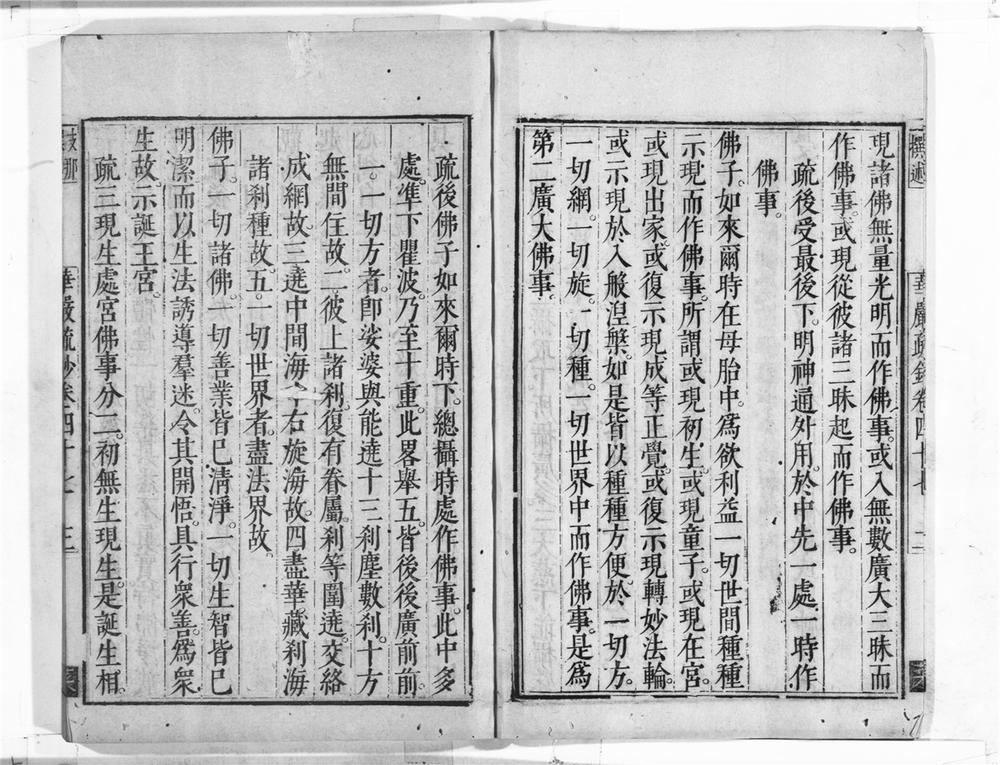 撰述
華嚴疏鈔卷四十七
二
現諸佛無量光明而作佛事。或入無數廣大三昧而
作佛事。或現從彼諸三昧起而作佛事。
疏後受最後下。明神通外用。於中先一處一時作
佛事。
佛子。如來爾時在母胎中。爲欲利益一切世間種種
示現而作佛事。所謂或現初生。或現童子。或現在宮。
或現出家。或復示現成等正覺。或復示現轉妙法輪。
或示現於入般涅槃。如是皆以種種方便。於一切方。
一切網。一切旋。一切種。一切世界中而作佛事。是爲
第二廣大佛事。
疏後佛子如來爾時下。總攝時處作佛事。此中多
處。準下瞿波。乃至十重。此畧舉五。皆後後廣前前。
一。一切方者。卽娑婆與能遶十三刹塵數刹。十方
無間住故。二彼上諸刹。復有眷屬。刹等圍遶。交絡
成網故。三遶中間海。令右旋海故。四盡華藏刹海
諸刹種故。五。一切世界者。盡法界故。
佛子。一切諸佛。一切善業皆已淸淨。一切生智皆已
明潔。而以生法誘導羣迷。令其開悟。具行衆善。爲衆
生故。示誕王宮。
疏三現生處宮佛事分二。初無生現生。是誕生相。
華嚴疏鈔卷四十七
三